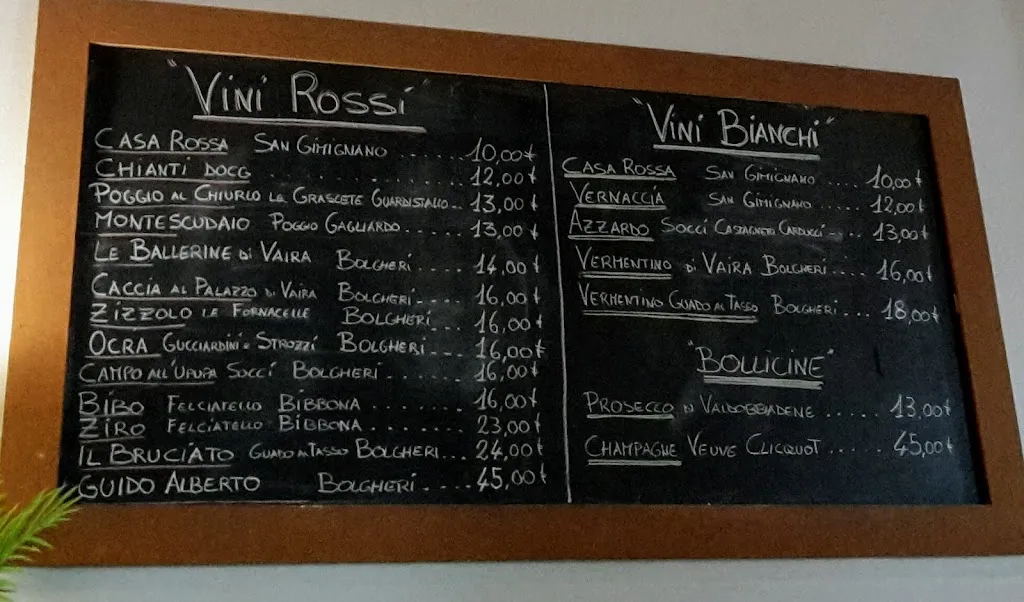 "VINI ROSSI"
CASA ROSSA SAN GIMIGNANO ...... 10,00€
CHIANTI DOCG .................. 12,00€
POGGIO AL CHIURLO LE GRASCETE GUARDISTALLO.. 13,00€
MONTESCUDAIO POGGIO GAGLIARDO..... 13,00€
LE BALLERINE DI VAIRA BOLGHERI.... 14,00€
CACCIA AL PALAZZO DI VAIRA BOLGHERI.... 16,00€
ZIZZOLO LE FORNACELLE BOLGHERI.... 16,00€
OCRA GUCCIARDINI E STROZZI BOLGHERI... 16,00€
CAMPO ALL'UPUPA SOCCI BOLGHERI....... 16,00€
BIBO FELCIATELLO BIBBONA ........ 16,00€
ZIRO FELCIATELLO BIBBONA ........ 23,00€
IL BRUCIATO GUADO AL TASSO BOLGHERI... 24,00€
GUIDO ALBERTO BOLGHERI.... 45,00€
"VINI BIANCHI"
CASA ROSSA SAN GIMIGNANO .... 10,00€
VERNACCIA SAN GIMIGNANO .... 12,00€
AZZARDO SOCCI CASTAGNETO CARDUCCI.... 13,00€
VERMENTINO DI VAIRA BOLGHERI.... 16,00€
VERMENTINO GUADO AL TASSO BOLGHERI... 18,00€
"BOLLICINE"
PROSECCO DI VALDOBBIADENE ...... 13,00€
CHAMPAGNE VEUVE CLICQUOT ...... 45,00€